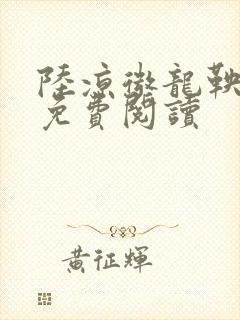 陸凉徹龍鞅
免費閱讀
黃征輝